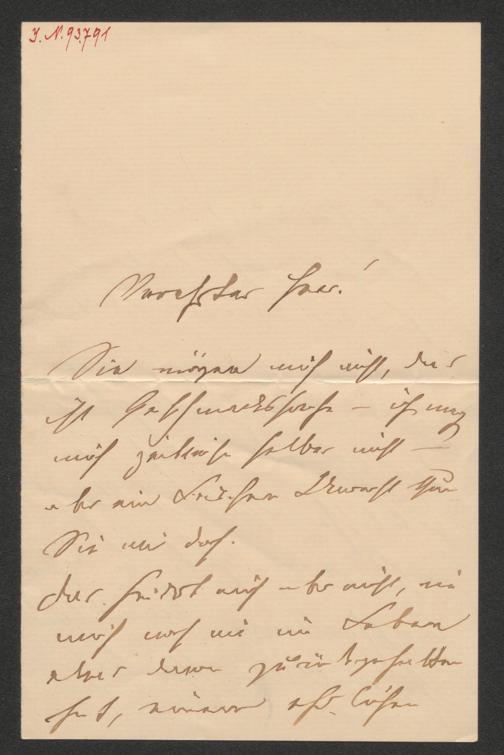 I. N. 93.791
Verehrter Herr!
Sie mögen mich nicht, das
ist Geschmackssache – ich mag
mich zeitweise selber nicht –
aber ein Unrecht thun
Sie mir doch.
Das hindert mich aber nicht, wie
mich noch nie im Leben
etwas davon zurückgehalten
hat, einem